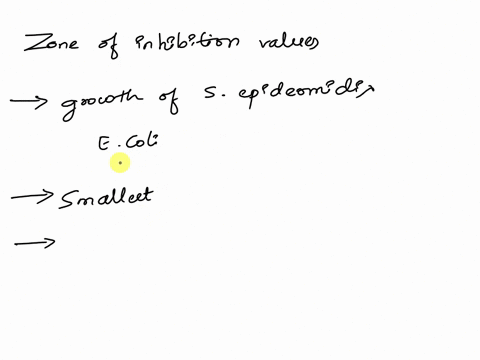 Zone of inhibition values
→ growth of S. epideomidis
E. Coli
→ Smallest
→